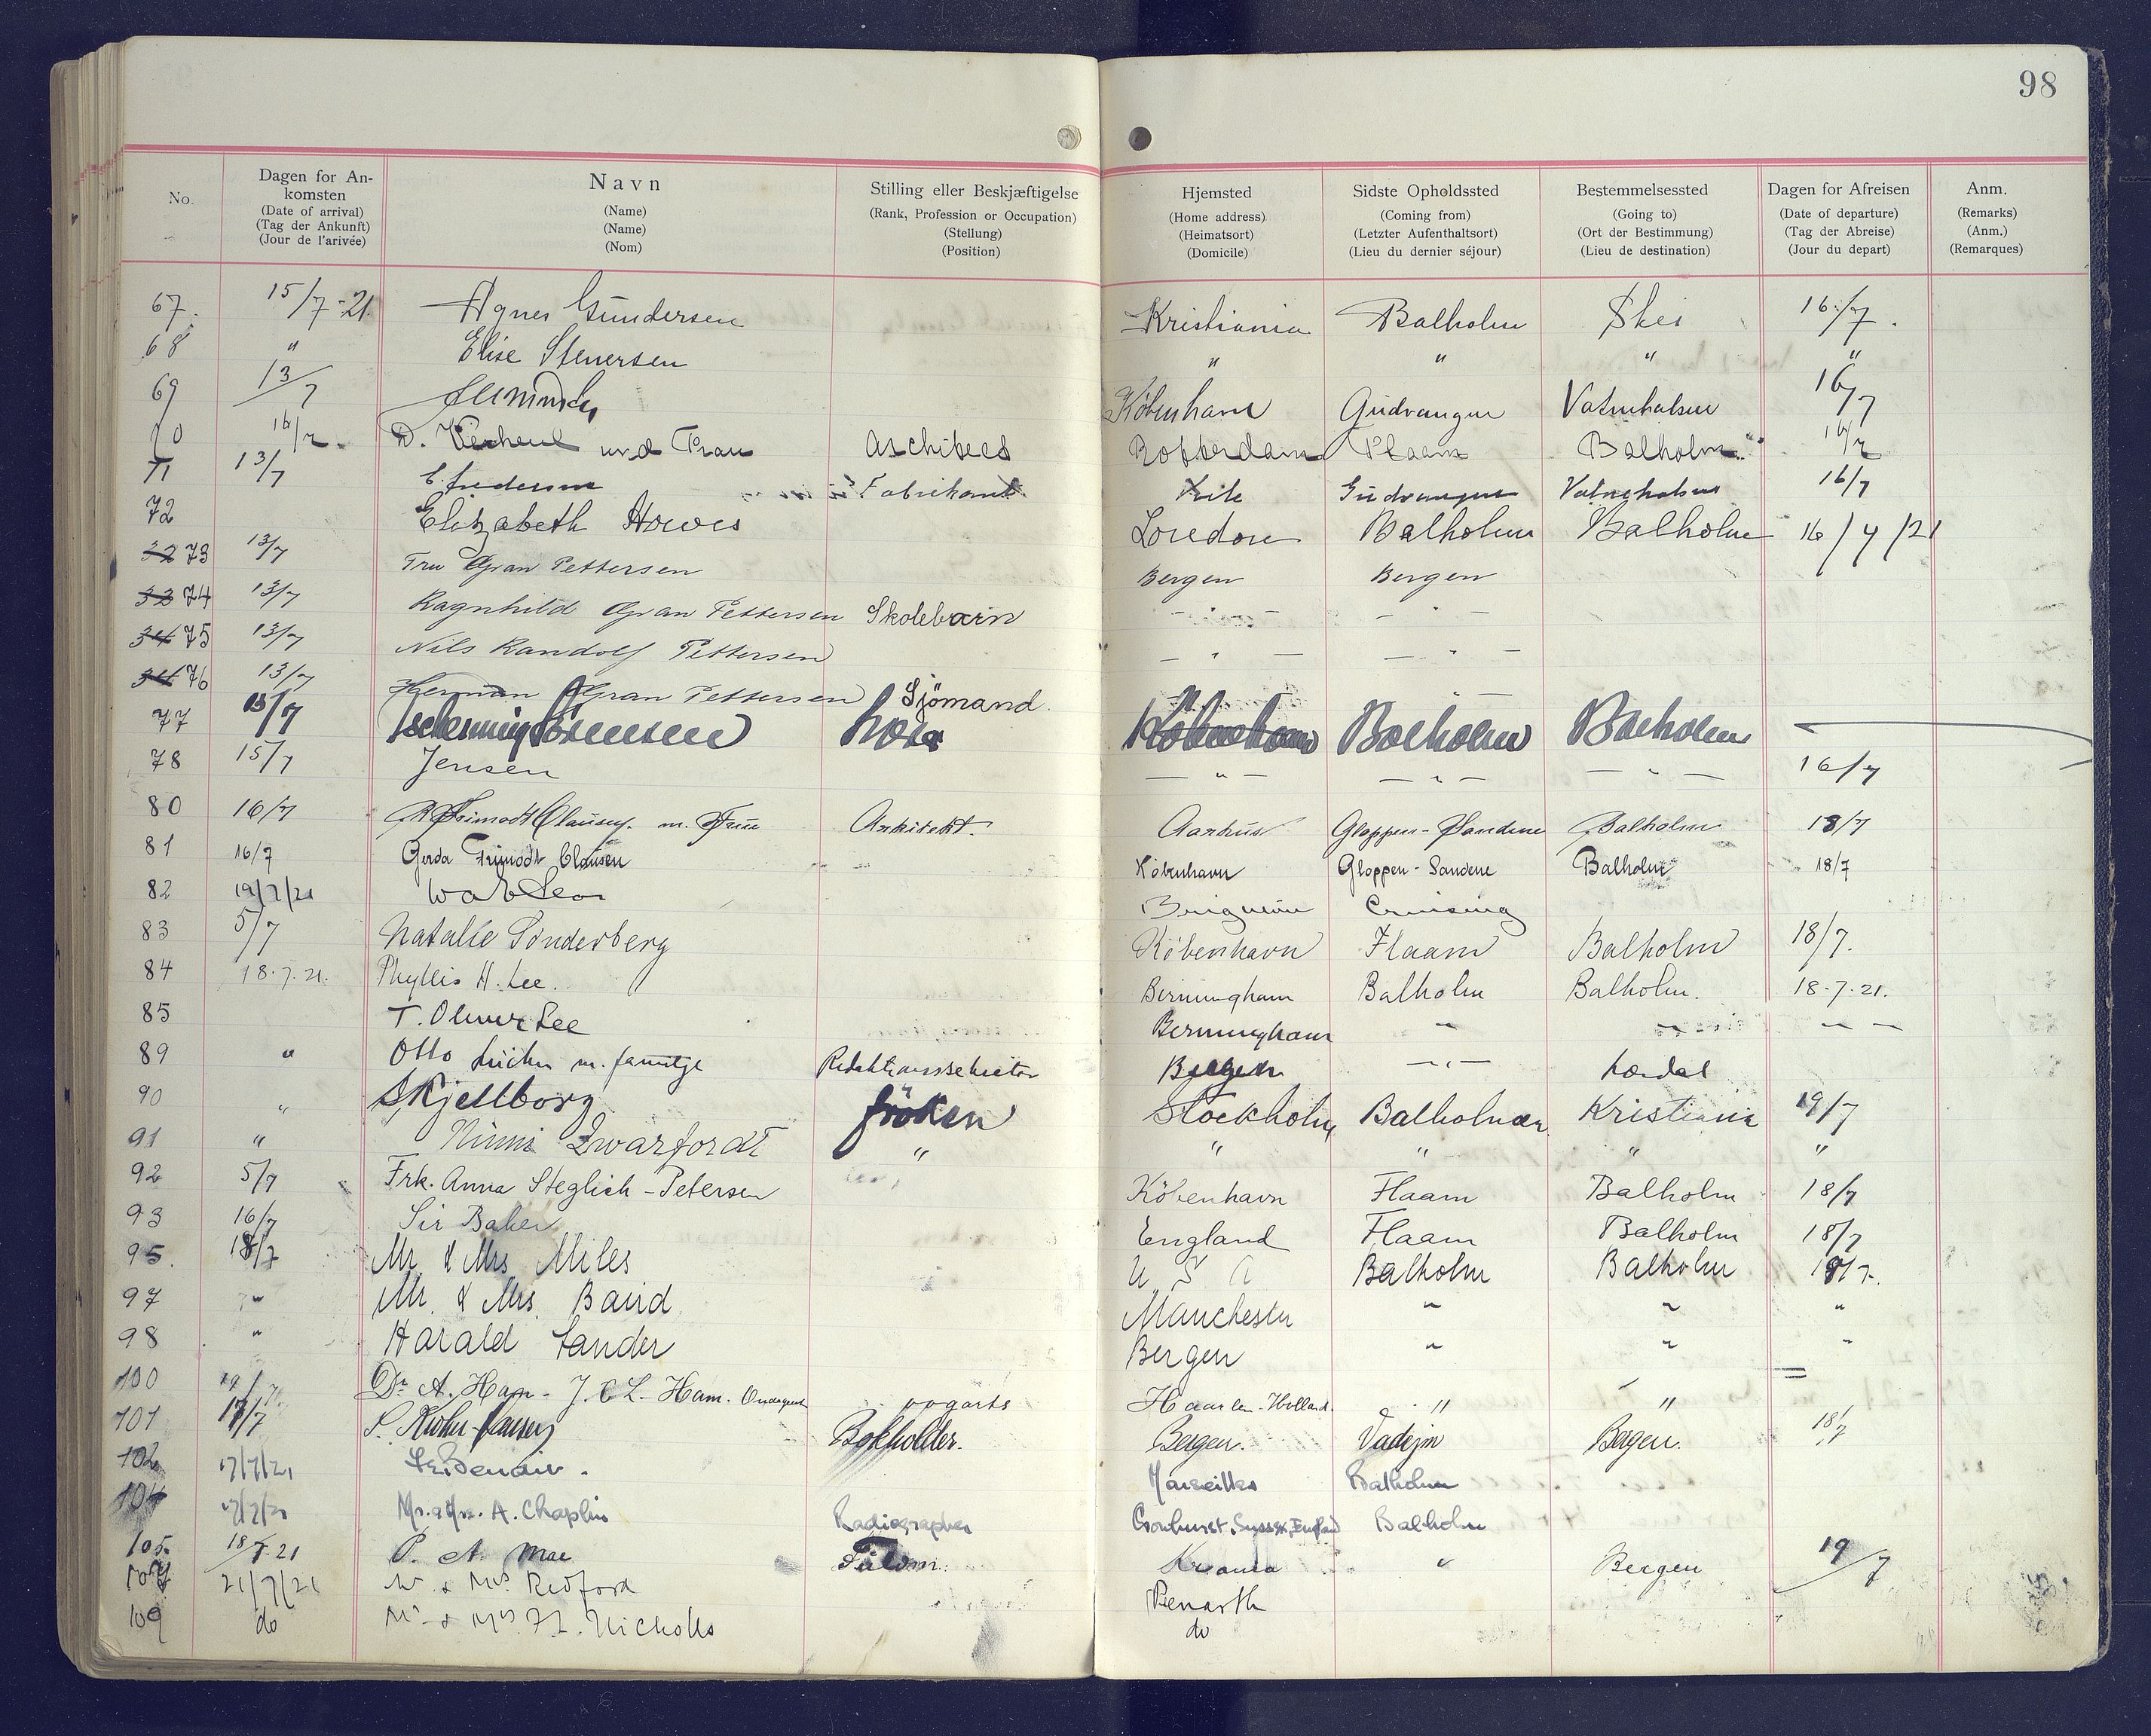 98
No. Dagen for An-komsten Navn Stilling eller Beskjæftigelse Hjemsted Sidste Opholdssted Bestemmelsessted Dagen for Afreisen Anm.
(Date of arrival) (Name) (Rank, Profession or Occupation) (Home address) (Coming from) (Going to) (Date of departure) (Remarks)
(Tag der Ankunft) (Name) (Stellung) (Heimatsort) (Letzter Aufenthaltsort) (Ort der Bestimmung) (Tag der Abreise) (Anm.)
(Jour de l'arivée) (Nom) (Position) (Domicile) (Lieu du dernier séjour) (Lieu de destination) (Jour du depart) (Remarques)
67. 15/7-21. Agnes Gundersen Kristiania Balholm Skei 16/7.
68 " Elise Stenersen " " " "
69 13/7 København Gudvangen Vatnehalsen 16/7
70 16/7. D. Verheul und Frau Architect Rotterdam Flaam Balholm 16/7
71 13/7 Fabrikant Gudvangen Vatnehalsen 16/7
72 Elizabeth Howes London Balholm Balholm 16/7/21
32 73 13/7 Fru Gran Pettersen Bergen Bergen
33 74 13/7 Ragnhild Gran Pettersen Skolebarn - " - - " -
34 75 13/7 Nils Randolf Pettersen - " - - " -
76 13/7 Herman Gran Pettersen Sjömand
77 15/7 Tscherning Sörensen København Balholm Balholm
78 15/7 Jensen - " - - " - - " - 16/7
80 16/7 Frimodt Clausen m. Frue Arkitekt. Aarhus Gloppen-Sandene Balholm 18/7
81 16/7 Gerda Frimodt Clausen København Gloppen-Sandene Balholm 18/7
82 19/7/21 Cruising
83 5/7 Natalie Sönderberg København Flaam Balholm 18/7.
84 18.7.21. Phyllis H. Lee. Birmingham Balholm Balholm. 18.7.21.
85 T. Oliver Lee Birmingham " " - -
89 " Otto m. familje Redaktionssekretær Bergen - " - Lærdal
90 " Skjellborg fröken Stockholm Balholmen Kristiania 19/7
91 " Ninni Zwarfordt " " " " "
92 5/7 Frk. Anna Steglich-Petersen København Flaam Balholm 18/7
93 16/7 Sir Baker England Flaam Balholm 18/7
95. 18/7 Mr. & Mrs Miles U S A Balholm Balholm 19/7.
97 " Mr. & Mrs. Baird Manchester " " "
98 " Harald Sander Bergen " " "
100 19/7 Dr. A. Ham - J. C. L. Ham. oogarts Haarlem-Holland. " "
101 17/7 Bokholder. Bergen. Vadheim Bergen. 18/7
102 17/7/21 Marseilles Balholm
104 Mr. & Mrs. A. Chaplin Radiographer Crowhurst, Sussex, England Balholm
105. 18/7.21 P. A. Moe Krania " Bergen 19/7
107 21/7/21 Mr & Mrs Redford Penarth
109 do Mr & Mrs F. J. Nicholls do